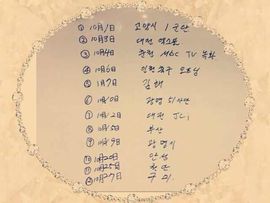 ① 10月1日 고양시 1군단
② 10月3日 대전 엑스포
③ 10月4日 춘천 MBC TV 녹화
④ 10月6日 인천 중구
⑤ 10月7日 김해
⑥ 10月10日 광명
⑦ 10月12日 대전 JCI
⑧ 10月15日 부산
⑨ 10月19日 광명시
⑩ 10月20日 안성
⑪ 10月25日 천안
⑫ 10月27日 구미